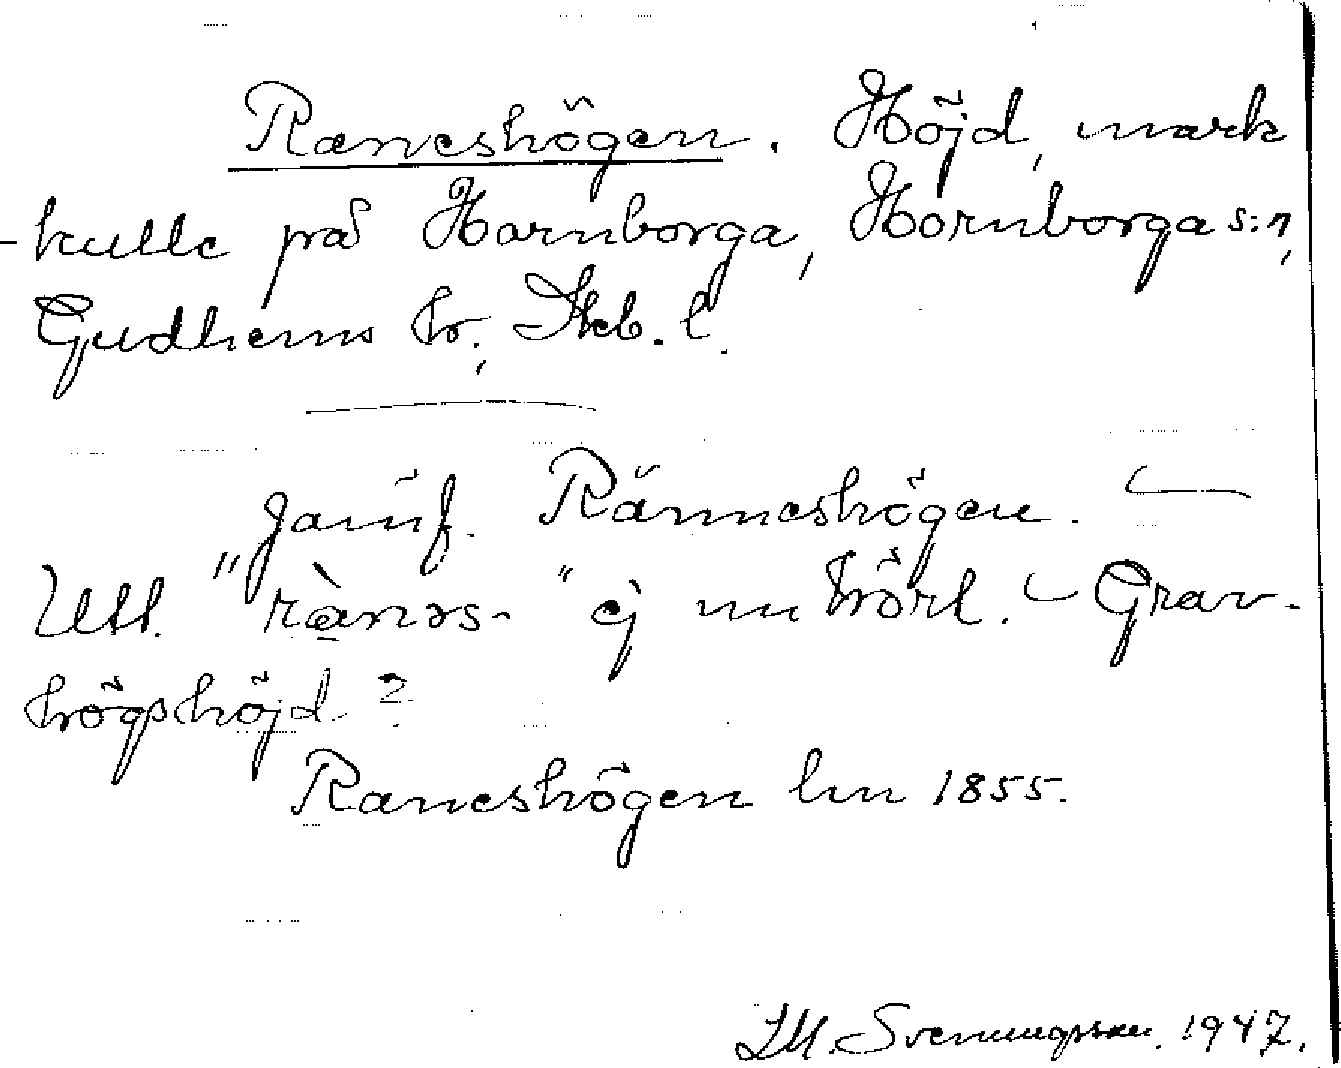 Raneshögen. Höjd, mark
-kulle på Hornborga, Hornborga s:n,
Gudhems hr., Skb. l.
Jämf. Ränneshögen. —
Utt. "rànəs-" ej nu hört. — Grav-
högshöjd?
Raneshögen lm 1855.
J.M. Svenungsson. 1947.